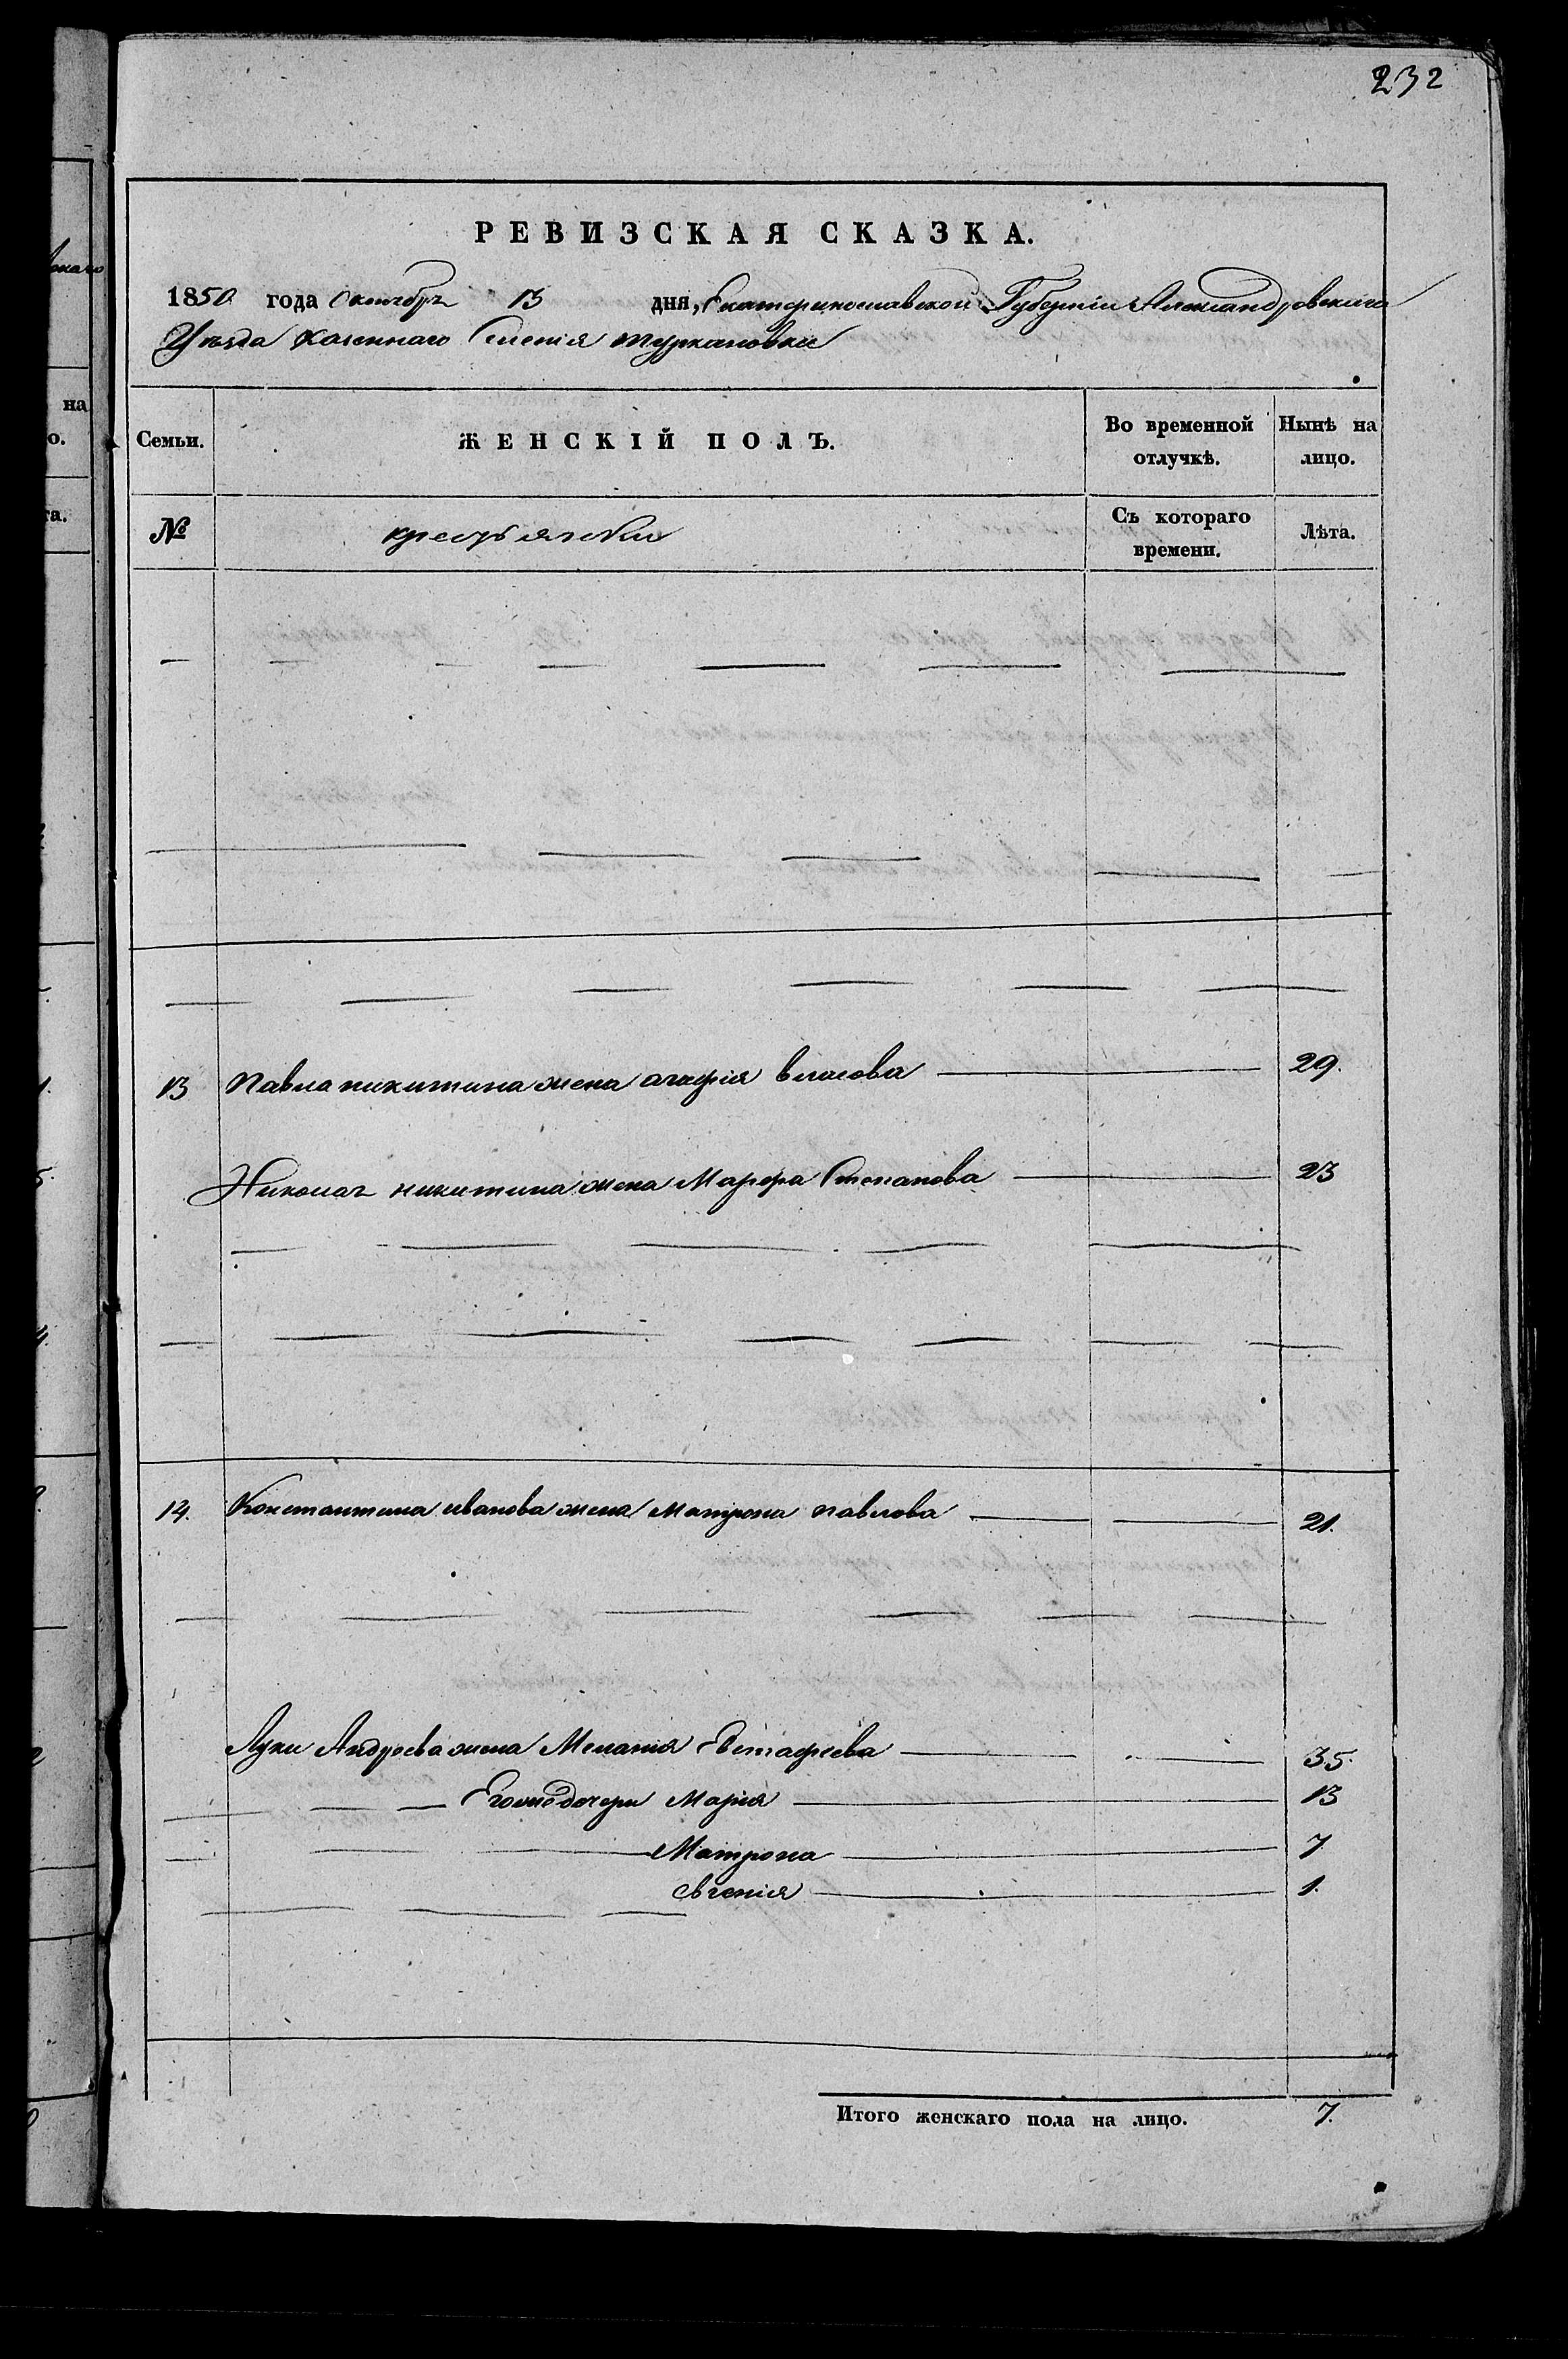 232
РЕВИЗСКАЯ СКАЗКА.
1850 года Октября 13 дня, Екатеринославской Губерніи Александровскаго
Уѣзда Казеннаго Селенія Туркановки
Семьи. ЖЕНСКІЙ ПОЛЪ. Во временной отлучкѣ. Нынѣ на лицо.
№ крестьянки Съ котораго времени. Лѣта.
13 Павла никитина жена агафія власова 29.
Николая никитина жена Марфа Степанова 23
14. Константина иванова жена Матрона павлова 21.
Луки Андреева жена Меланія Евстафеева 35.
Егоже дочери Марія 13
Матрона 7
Евгенія 1.
Итого женскаго пола на лицо. 7.